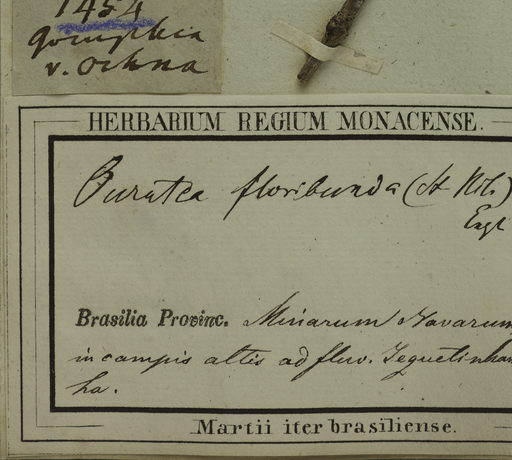 1454
gomphia
v. Ochna
HERBARIUM REGIUM MONACENSE.
Ouratea floribunda (St Hil.)
Engl
Brasilia Provinc. Minarum Novarum
in campis altis ad fluv. Jequetinhan
ha.
Martii iter brasiliense.